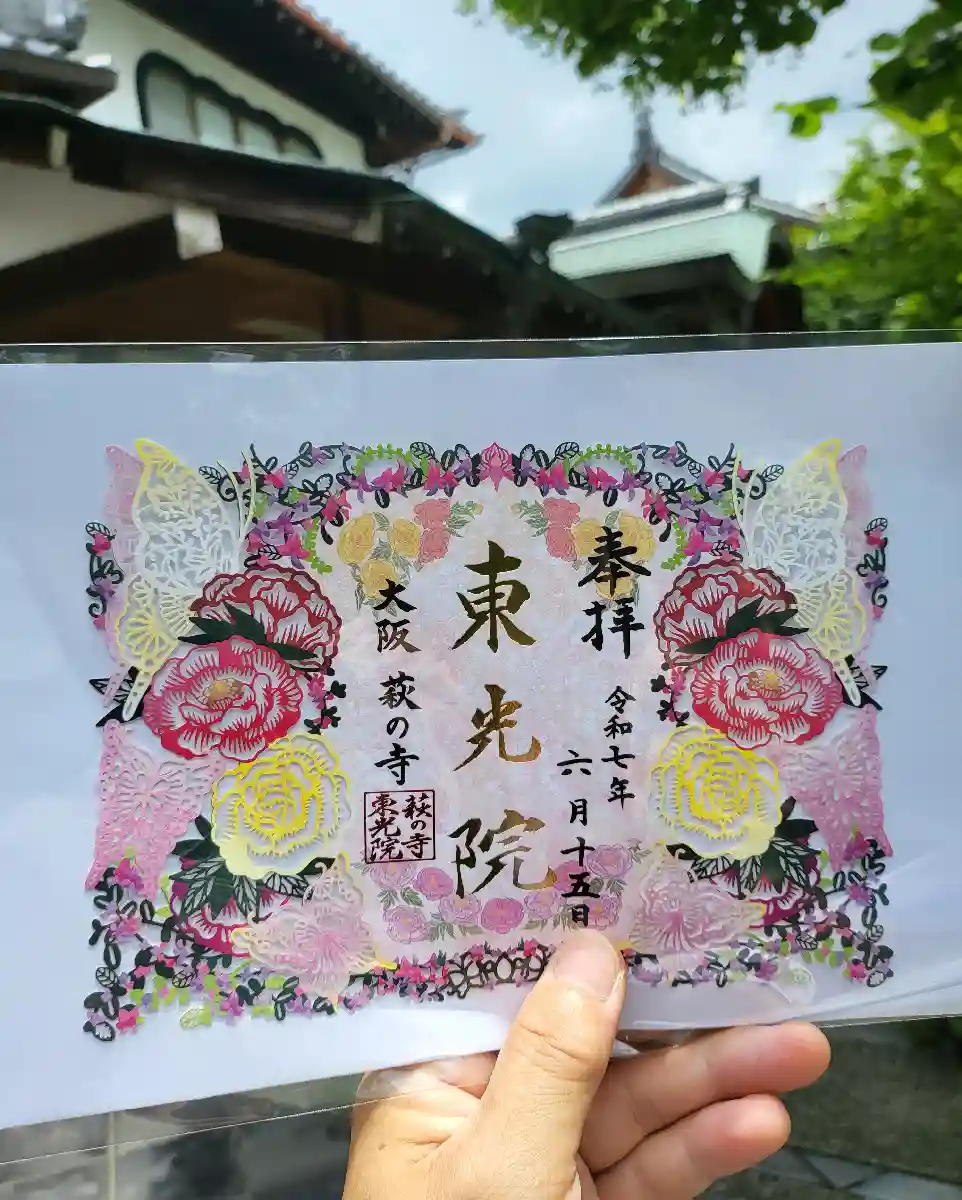 奉拝
令和七年
六月十五日
東光院
大阪 萩の寺
萩の寺
東光院